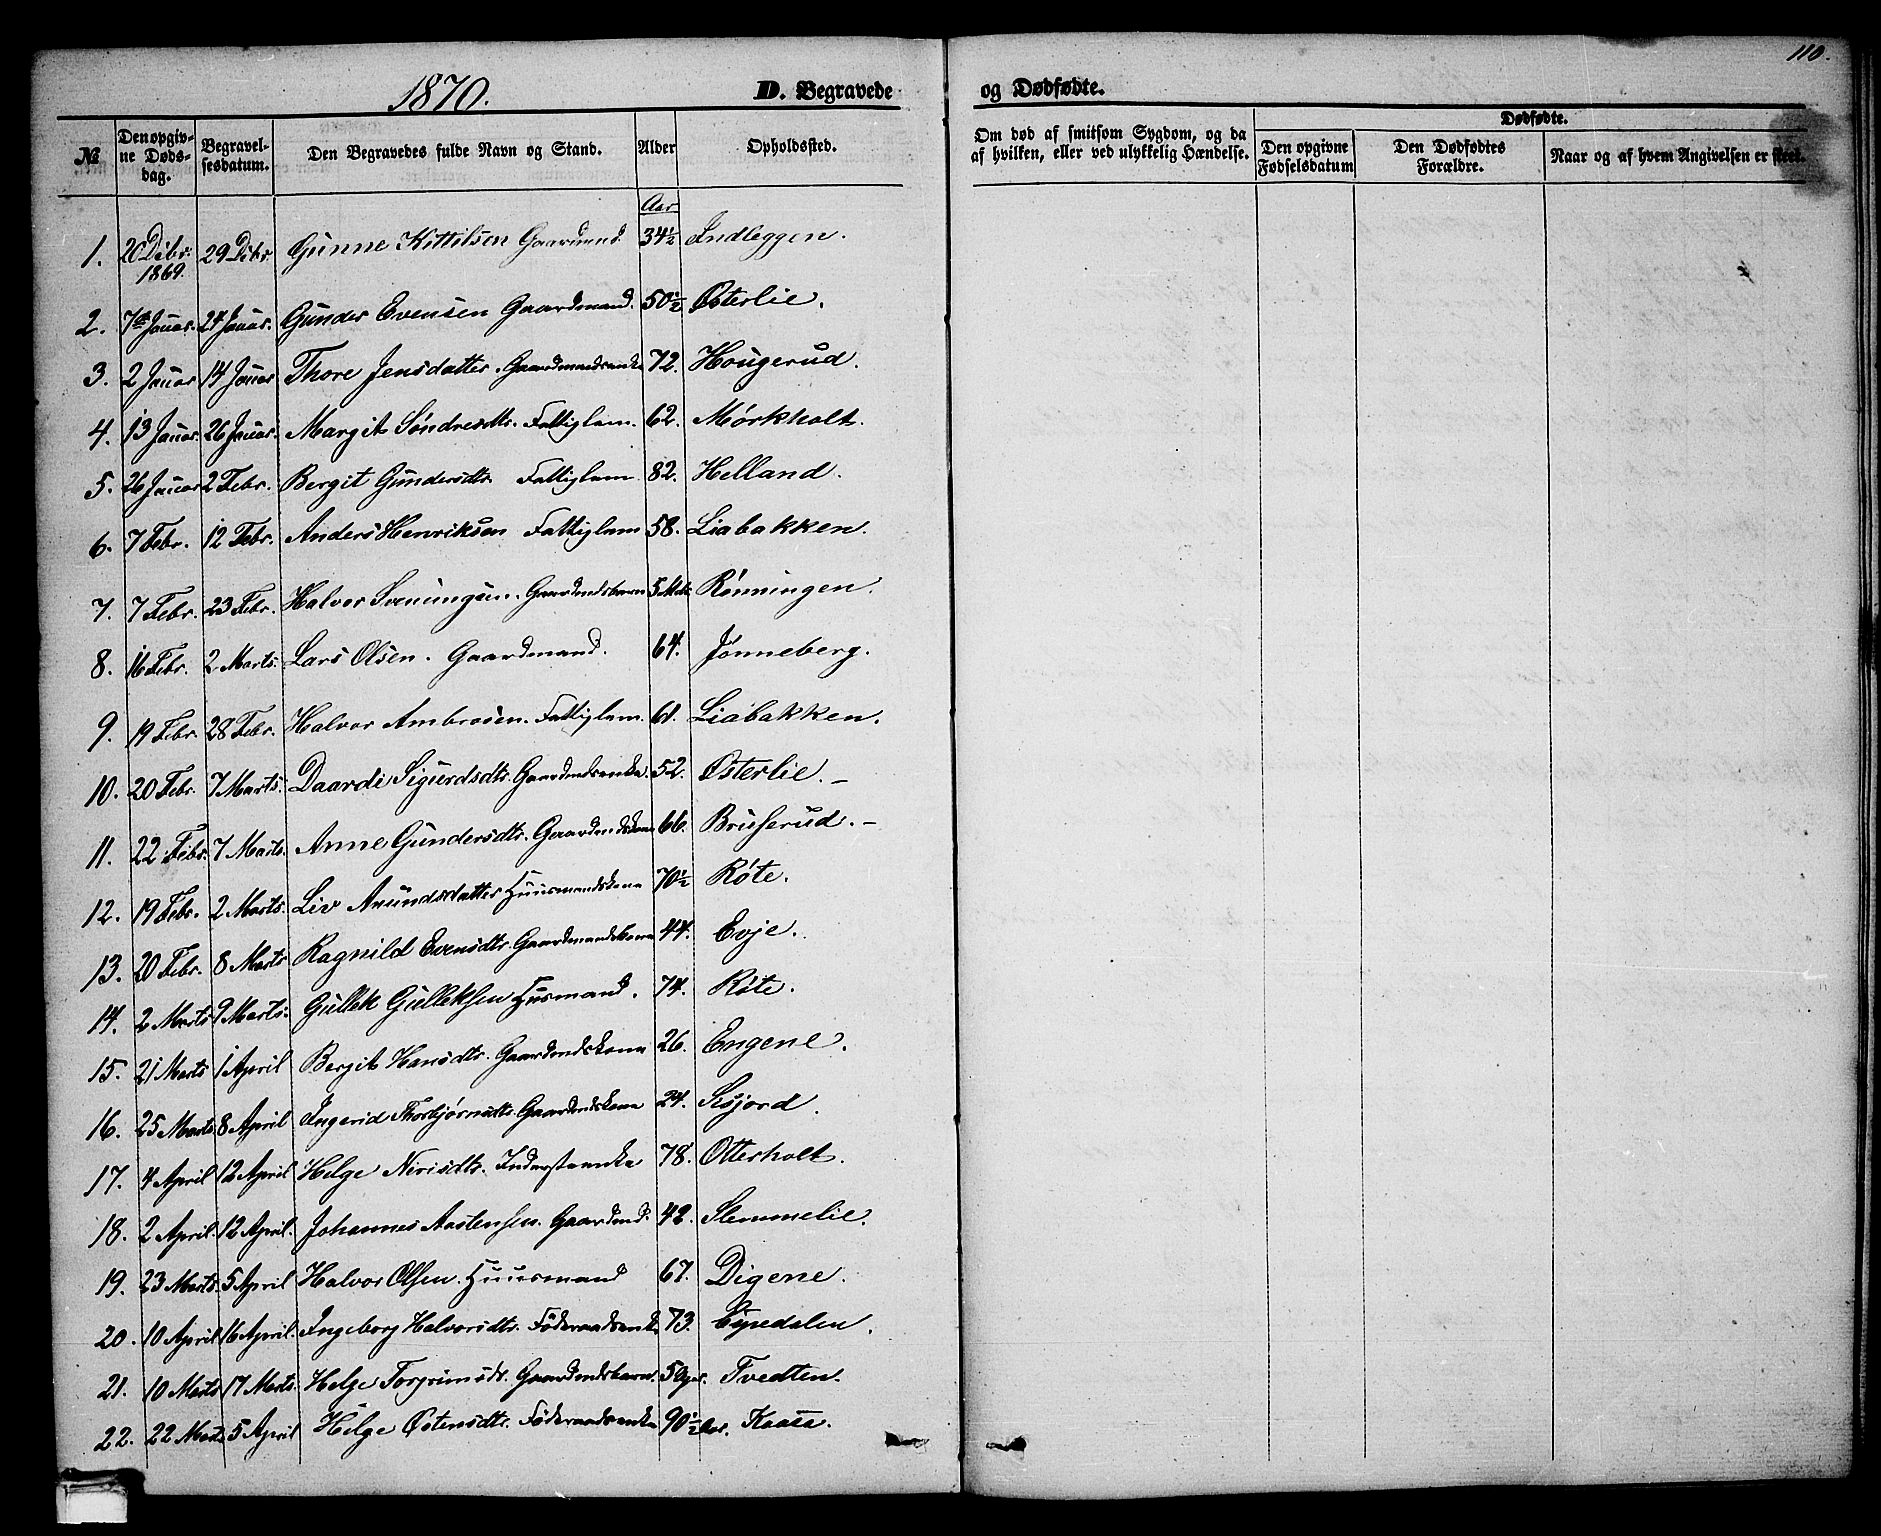 110.
1870.
D. Begravede og Dødfødte.
№ Den opgivne Dødsdag. Begravelsesdatum. Den Begravedes fulde Navn og Stand. Alder Opholdssted. Om død af smitsom Sygdom, og da af hvilken, eller ved ulykkelig Hændelse. Dødfødte. Den opgivne Fødselsdatum Den Dødfødtes Forældre. Naar og af hvem Angivelsen er skeet.
Aar
1. 20 Debr. 1869. 29 Debr Gunne Kittilsen Gaardmnd. 34½ Indleggen.
2. 7de Januar. 24 Januar. Gunder Evensen Gaardmand. 50½ Østerlie.
3. 2 Januar 14 Januar Thore Jensdatter. Gaardmandsenke 72. Hougerud.
4. 13 Januar. 26 Januar. Margit Søndresdtr. Fattiglem. 62. Mørkholt.
5. 26 Januar 2 Febr. Bergit Gundersdtr. Fattiglem 82. Helland.
6. 7 Febr. 12 Febr. Anders Henriksen Fattiglem 58. Liabakken.
7. 7 Febr. 23 Febr. Halvor Sveningsen. Gaardmdsbarn 5 Mdr. Rønningen.
8. 16 Febr. 2 Marts. Lars Olsen. Gaardmand. 64. Jønneberg.
9. 19 Febr. 28 Febr. Halvor Ambrosen. Fattiglem. 61. Liabakken.
10. 20 Febr. 7 Marts. Daardi Sigurdsdtr. Gaardmdsenke. 52. Østerlie. –
11. 22 Febr. 7 Marts. Anne Gundersdtr. Gaardmdskone 66. Bruserud. –
12. 19 Febr. 2 Marts. Liv Amundsdatter Huusmandskone 70½ Røte.
13. 20 Febr. 8 Marts Ragnild Evensdtr. Gaardmandskone 44. Evje.
14. 2 Marts 9 Marts. Gullek Gulleksen Husmand. 74. Røte.
15. 21 Marts 1 April Bergit Hansdtr. Gaardmdskone 26. Engene.
16. 25 Marts 8 April Ingerid Thorbjørnsdtr. Gaardmdskone 24. Sisjord.
17. 4 April 12 April Helge Nirisdtr. Inderstenke 78. Otterholt.
18. 2 April. 12 April. Johannes Aastensen. Gaardmd. 42. Slemmelie.
19. 23 Marts. 5 April Halvor Olsen. Huusmand 67. Digene.
20. 10 April 16 April. Ingeborg Halvorsdtr. Föderaadsenke 73. Eipedalen.
21. 10 Marts 17 Marts. Helge Torgrimsdr. Gaardmdsbarn. 5 Dger. Tvedten.
22. 22 Marts 5 April Helge Østensdtr. Föderaadsenke 90½ Aar. Kaasa.